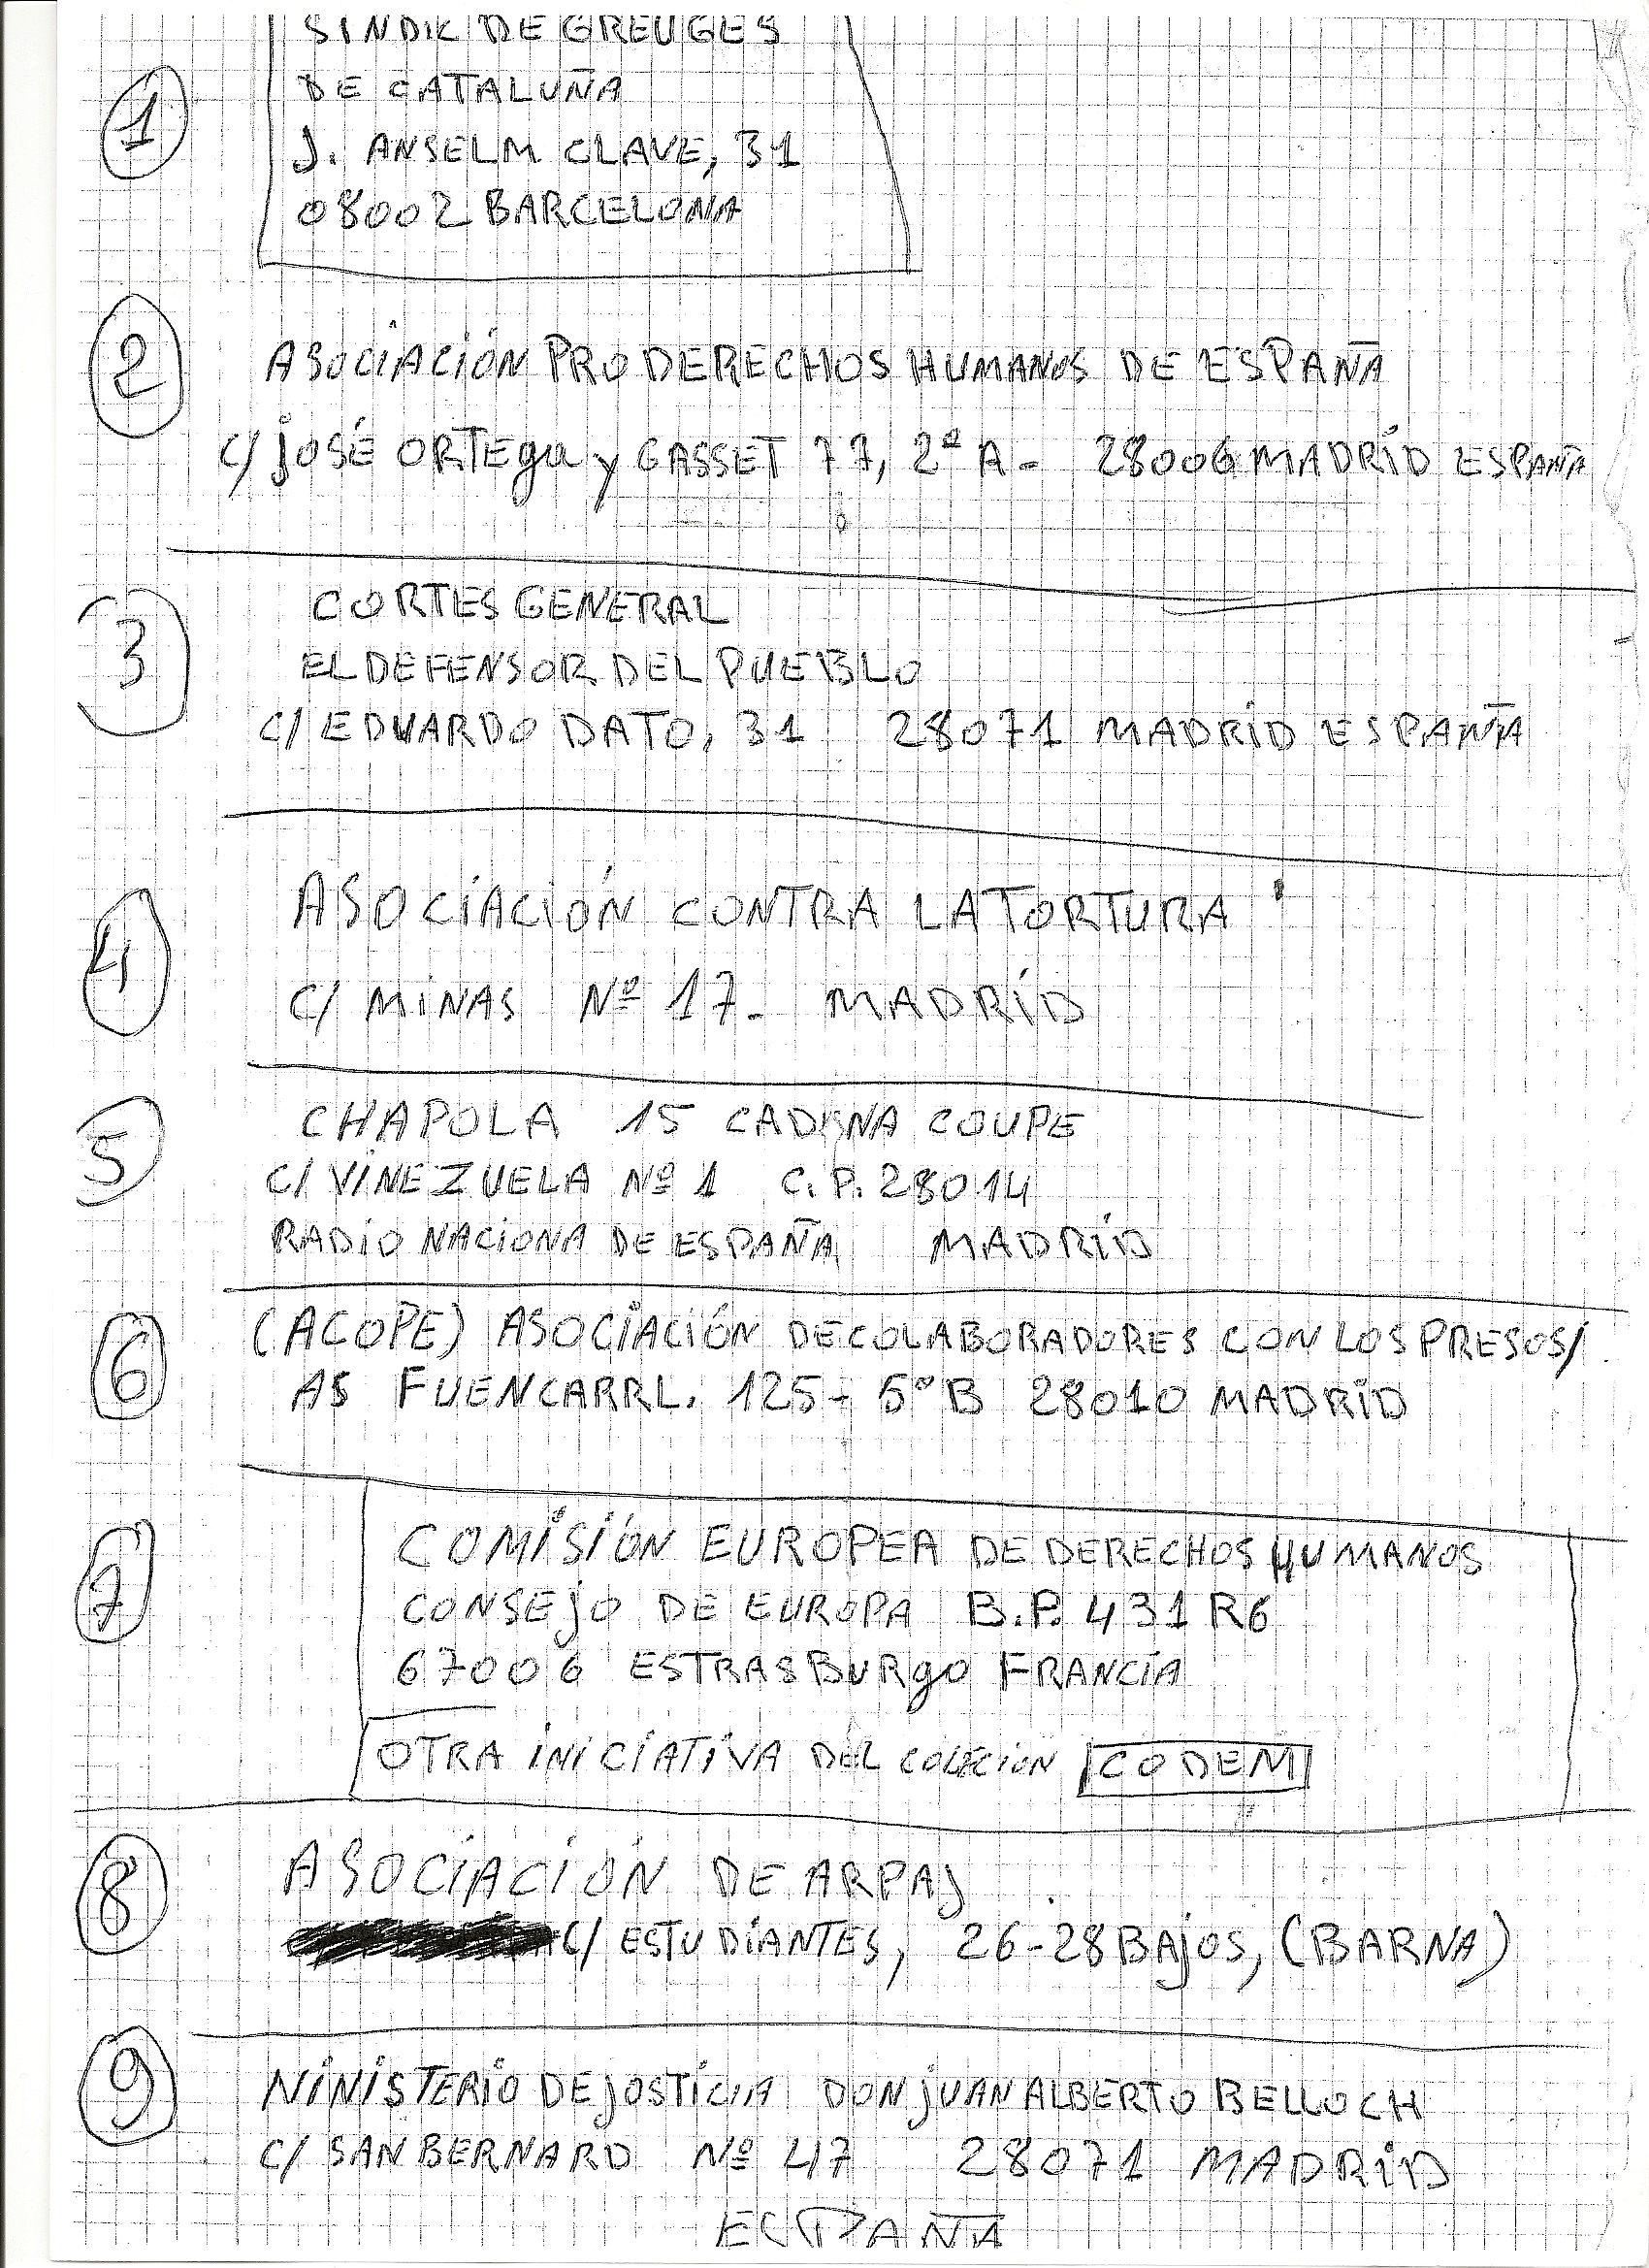 1
SINDIC DE GREUGES
DE CATALUÑA
J. ANSELM CLAVE, 31
08002 BARCELONA
2
ASOCIACIÓN PRO DERECHOS HUMANOS DE ESPAÑA
C/ JOSÉ ORTEGA y GASSET 77, 2º A - 28006 MADRÍD ESPAÑA
3
CORTES GENERAL
EL DEFENSOR DEL PUEBLO
C/ EDUARDO DATO, 31 28071 MADRÍD ESPAÑA
4
ASOCIACIÓN CONTRA LA TORTURA
C/ MINAS Nº 17 - MADRÍD
5
CHAPOLA 15 CADENA COUPE
C/ VINEZUELA Nº 1 C.P. 28014
RADIO NACIONA DE ESPAÑA MADRÍD
6
(ACOPE) ASOCIACIÓN DE COLABORADORES CON LOS PRESOS/
AS FUENCARRL. 125 - 5º B 28010 MADRID
7
COMISIÓN EUROPEA DE DERECHOS HUMANOS
CONSEJO DE EUROPA B.P. 431 R6
67006 ESTRASBURGO FRANCIA
OTRA INICIATIVA DEL COLECION CODEM
8
ASOCIACIÓN DE ARPAJ
C/ ESTUDIANTES, 26-28 BAJOS, (BARNA)
9
NINISTERIO DE JOSTICIA DON JUAN ALBERTO BELLOCH
C/ SAN BERNARD Nº 47 28071 MADRID
ESPAÑA